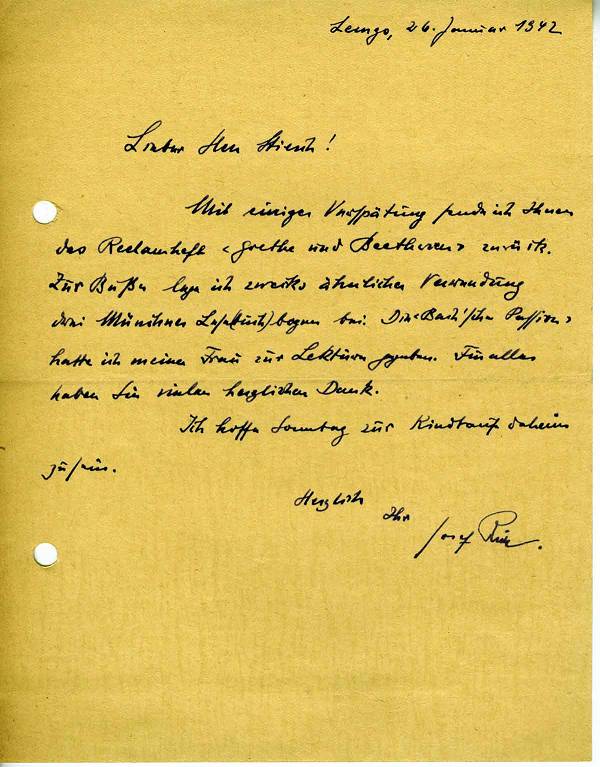 Lemgo, 26. Januar 1942
Lieber Herr
Mit einiger Verspätung sende ich Ihnen
das Reclamheft «Goethe und Beethoven» zurück.
Zur Buße lege ich zwecks ähnlicher Verwendung
drei Münchner Les(buch)bogen bei. Die «Bach'sche Passion»
hatte ich meiner Frau zur Lektüre gegeben. Für alles
haben Sie vielen herzlichen Dank.
Ich hoffe Sonntag zur Kindtauf daheim
zu sein.
Herzlich
Ihr
Josef